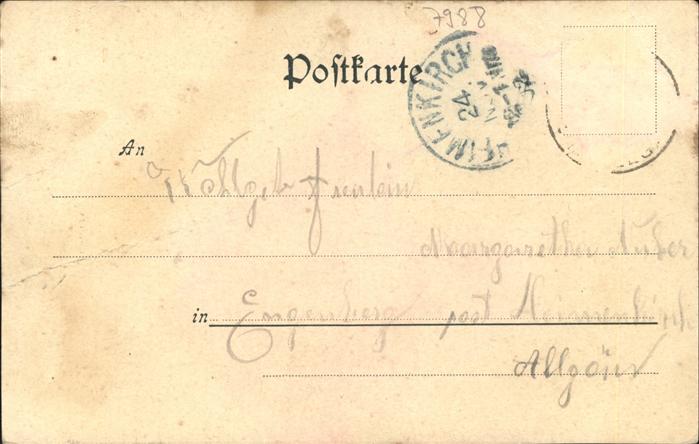 7988
Postkarte
HEIMENKIRCH
24
An Wohlgeb Freulein
Margaretha Huber
in Engenberg post Heimenkirch
Allgäu